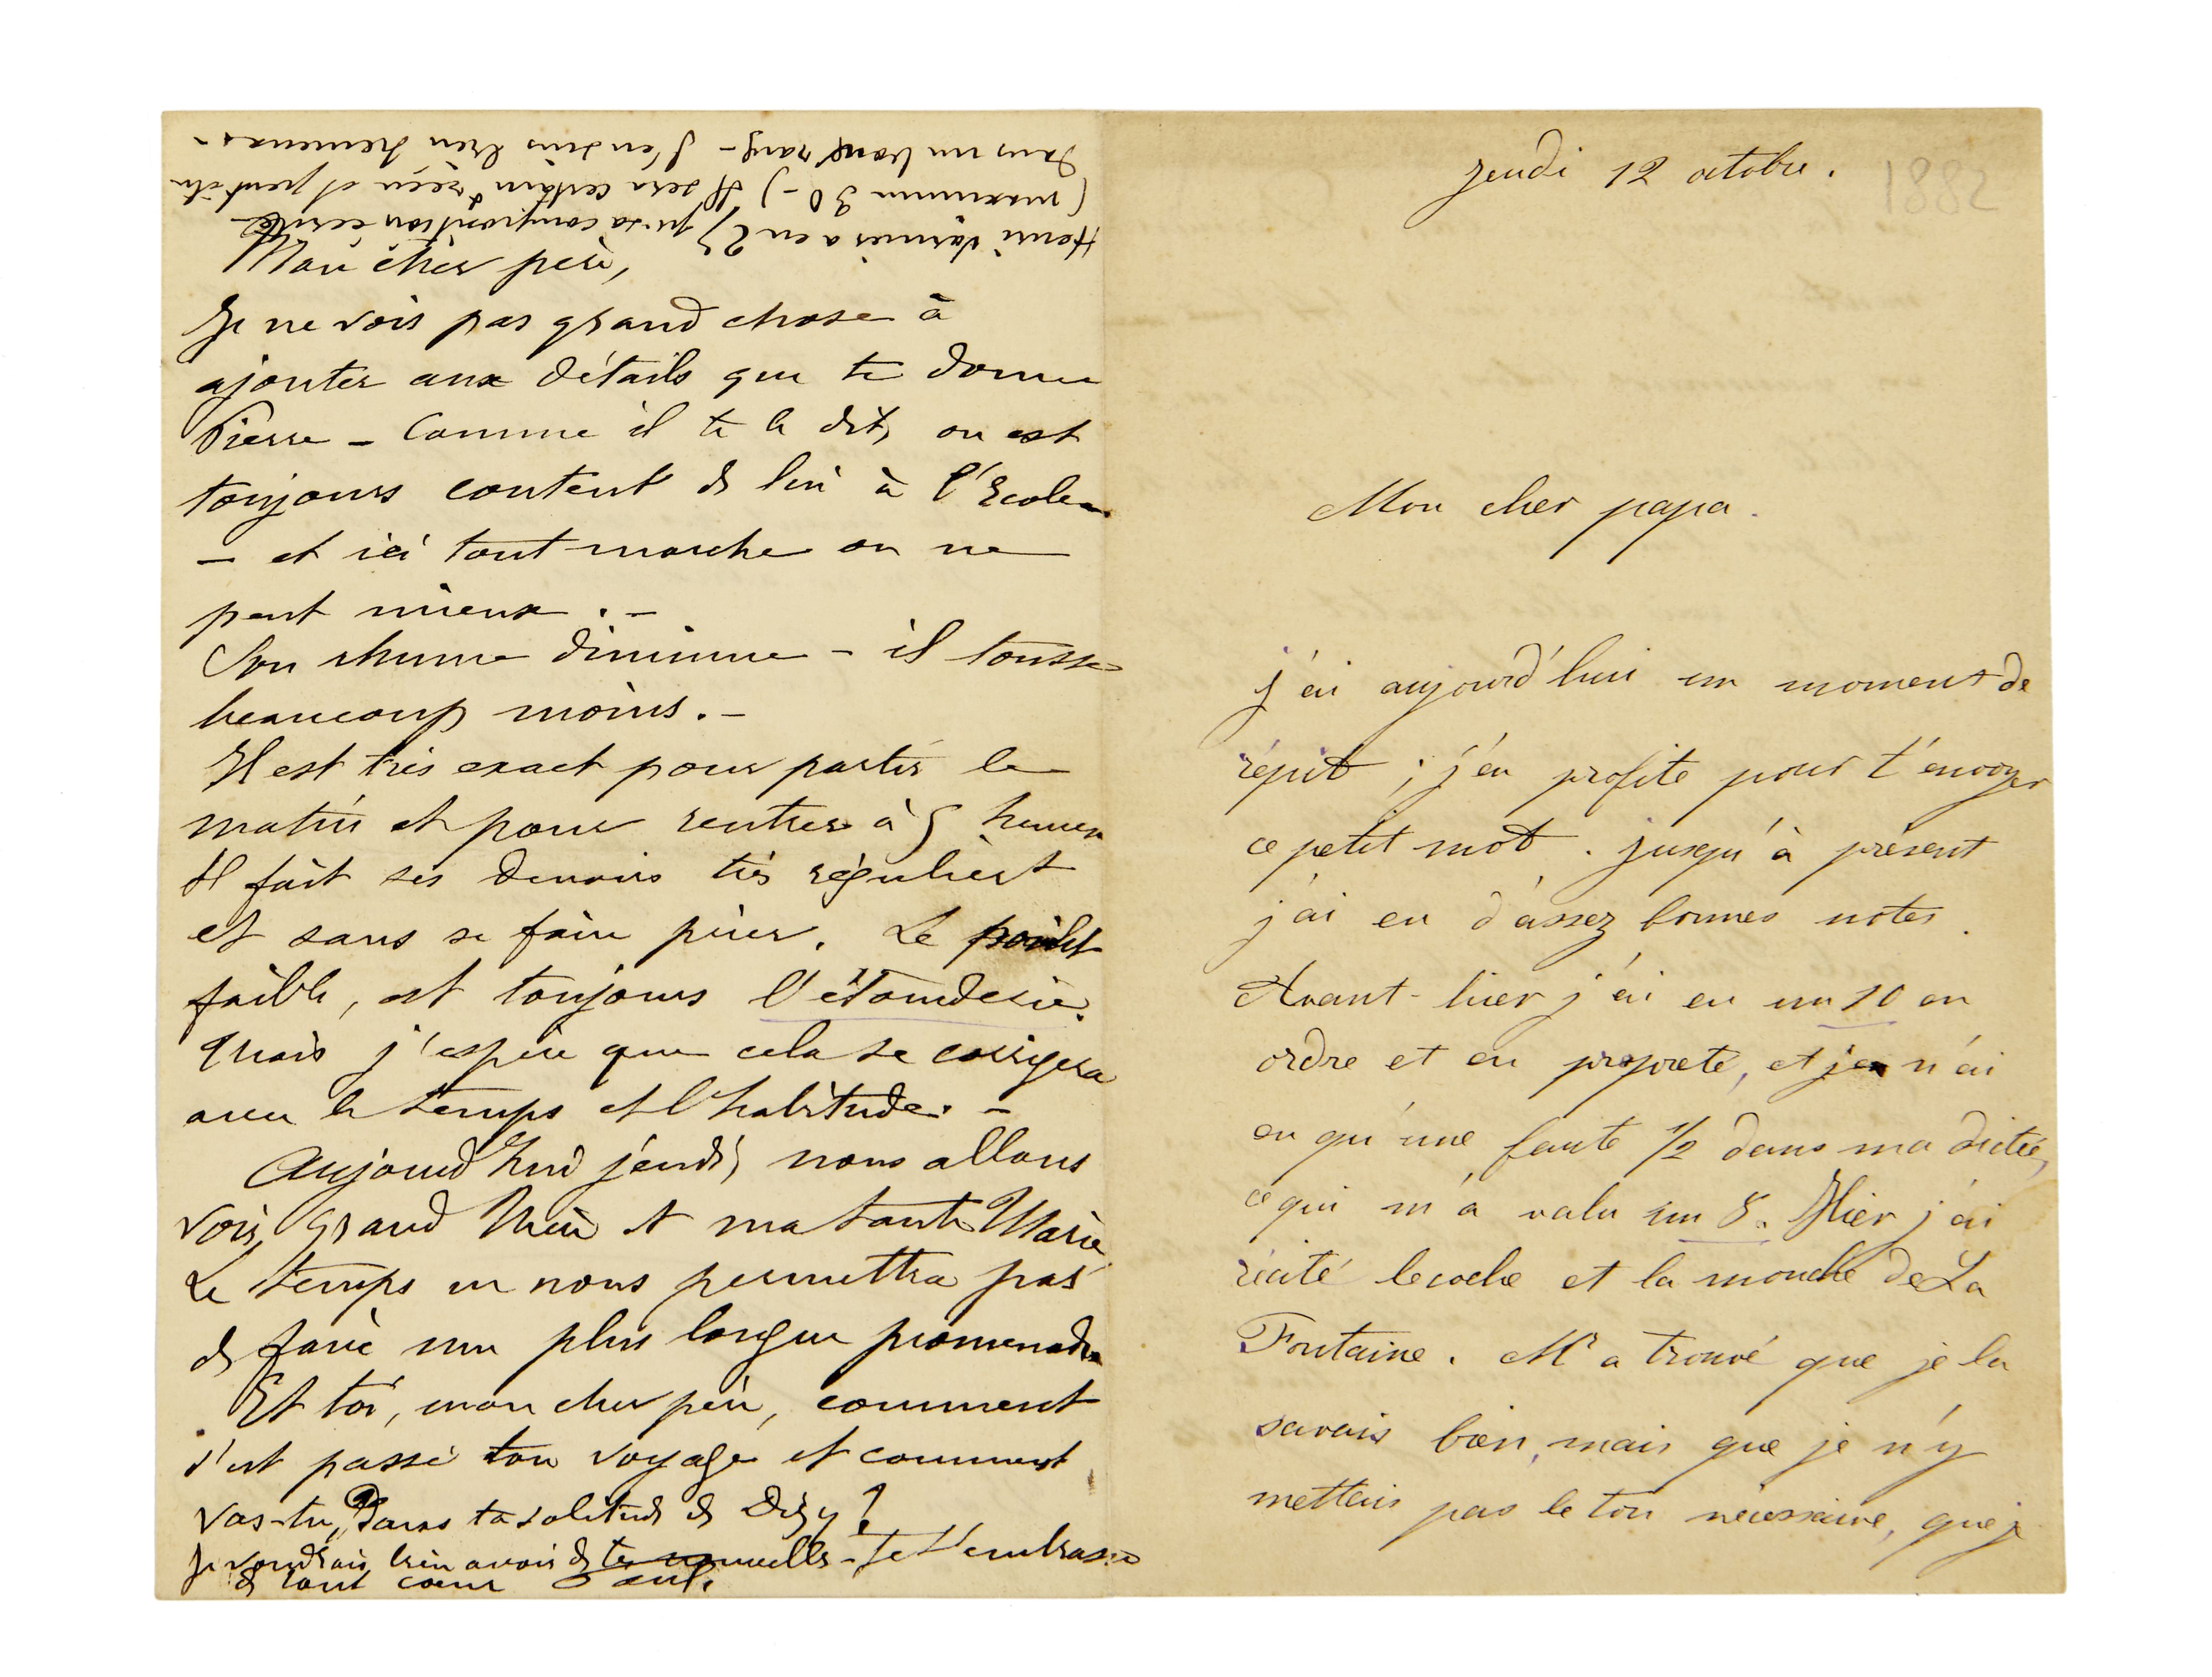 jeudi 12 octobre.
1882
Mon cher papa.
j'ai aujourd'hui un moment de
répit ; j'en profite pour t'envoyer
ce petit mot. jusqu'à présent
j'ai eu d'assez bonnes notes.
Avant-hier j'ai eu un 10 en
ordre et en propreté, et je n'ai
eu qu'une faute 1/2 dans ma dictée,
ce qui m'a valu un 8. Hier j'ai
récité le coche et la mouche de La
Fontaine. Mr a trouvé que je la
savais bien, mais que je n'y
mettais pas le ton nécessaire, que j
Mon cher père,
Je ne vois pas grand chose à
ajouter aux détails que te donne
Pierre – Comme il te le dit, on est
toujours content de lui à l'Ecole
– et ici tout marche on ne
peut mieux. –
Son rhume diminue – il tousse
beaucoup moins. –
Il est très exact pour partir le
matin et pour rentrer à 5 heures
Il fait ses devoirs très régulièrt
et sans se faire prier. Le point
faible, est toujours l'étourderie.
Mais j'espère que cela se corrigera
avec le temps et l'habitude. –
Aujourd'hui jeudi, nous allons
voir grand Mère et ma tante Marie
Le temps ne nous permettra pas
de faire une plus longue promenade
Et toi, mon cher père, comment
s'est passé ton voyage et comment
vas-tu, Dans ta solitude de Dizy ?
Je voudrais bien avoir de tes nouvelles – Je t'embrasse
de tout coeur Paul.
Henri a eu 25 pr sa composition écrite
(maximum 30 –) Il sera certaint reçu et peut-êtr
dans un bon rang – J'en suis bien heureux –